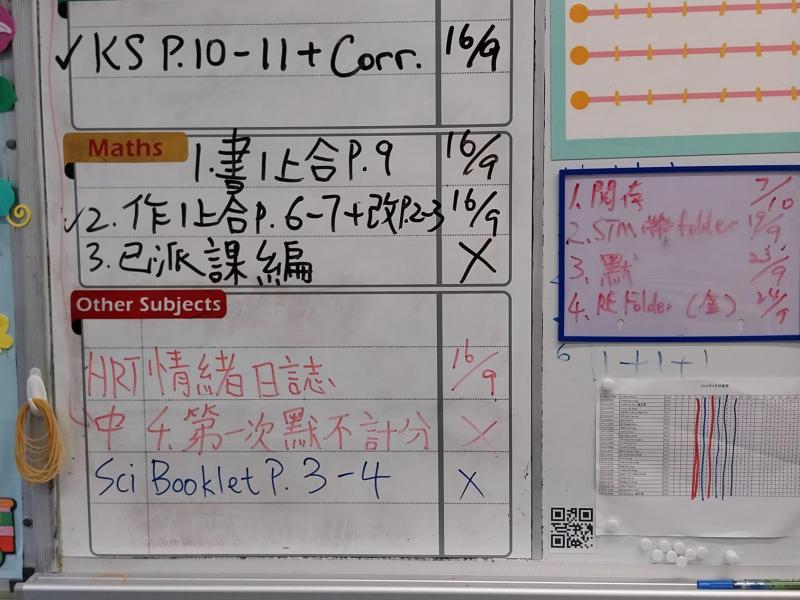 ✓ KS P.10-11 + Corr. 16/9
Maths
1. 書1上合P.9 16/9
✓2. 作1上合p.6-7+改P.2-3 16/9
3. 已派課編 X
Other Subjects
HRT 情緒日誌 16/9
中 4. 第一次默不計分 X
Sci Booklet P. 3-4 X
1. 閱存 7/10
2. STM folder 19/9
3. 默 23/9
4. RE Folder (金) 24/9
1+1+1